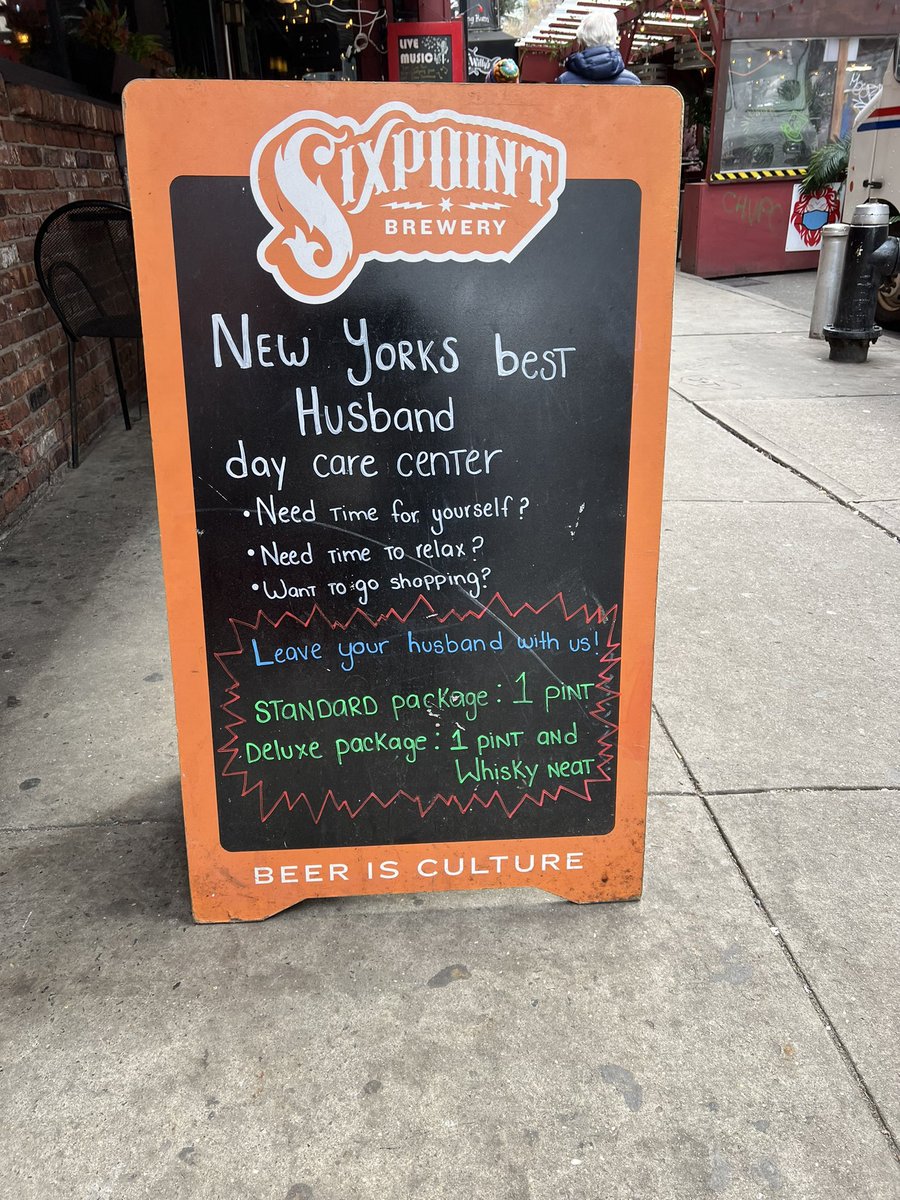 LIVE
MUSIC
SIXPOINT
BREWERY
New Yorks best
Husband
day care center
• Need Time for yourself?
• Need Time to relax?
• Want to go shopping?
Leave your husband with us!
STANDARD package: 1 pint
Deluxe package: 1 pint and
Whisky neat
BEER IS CULTURE